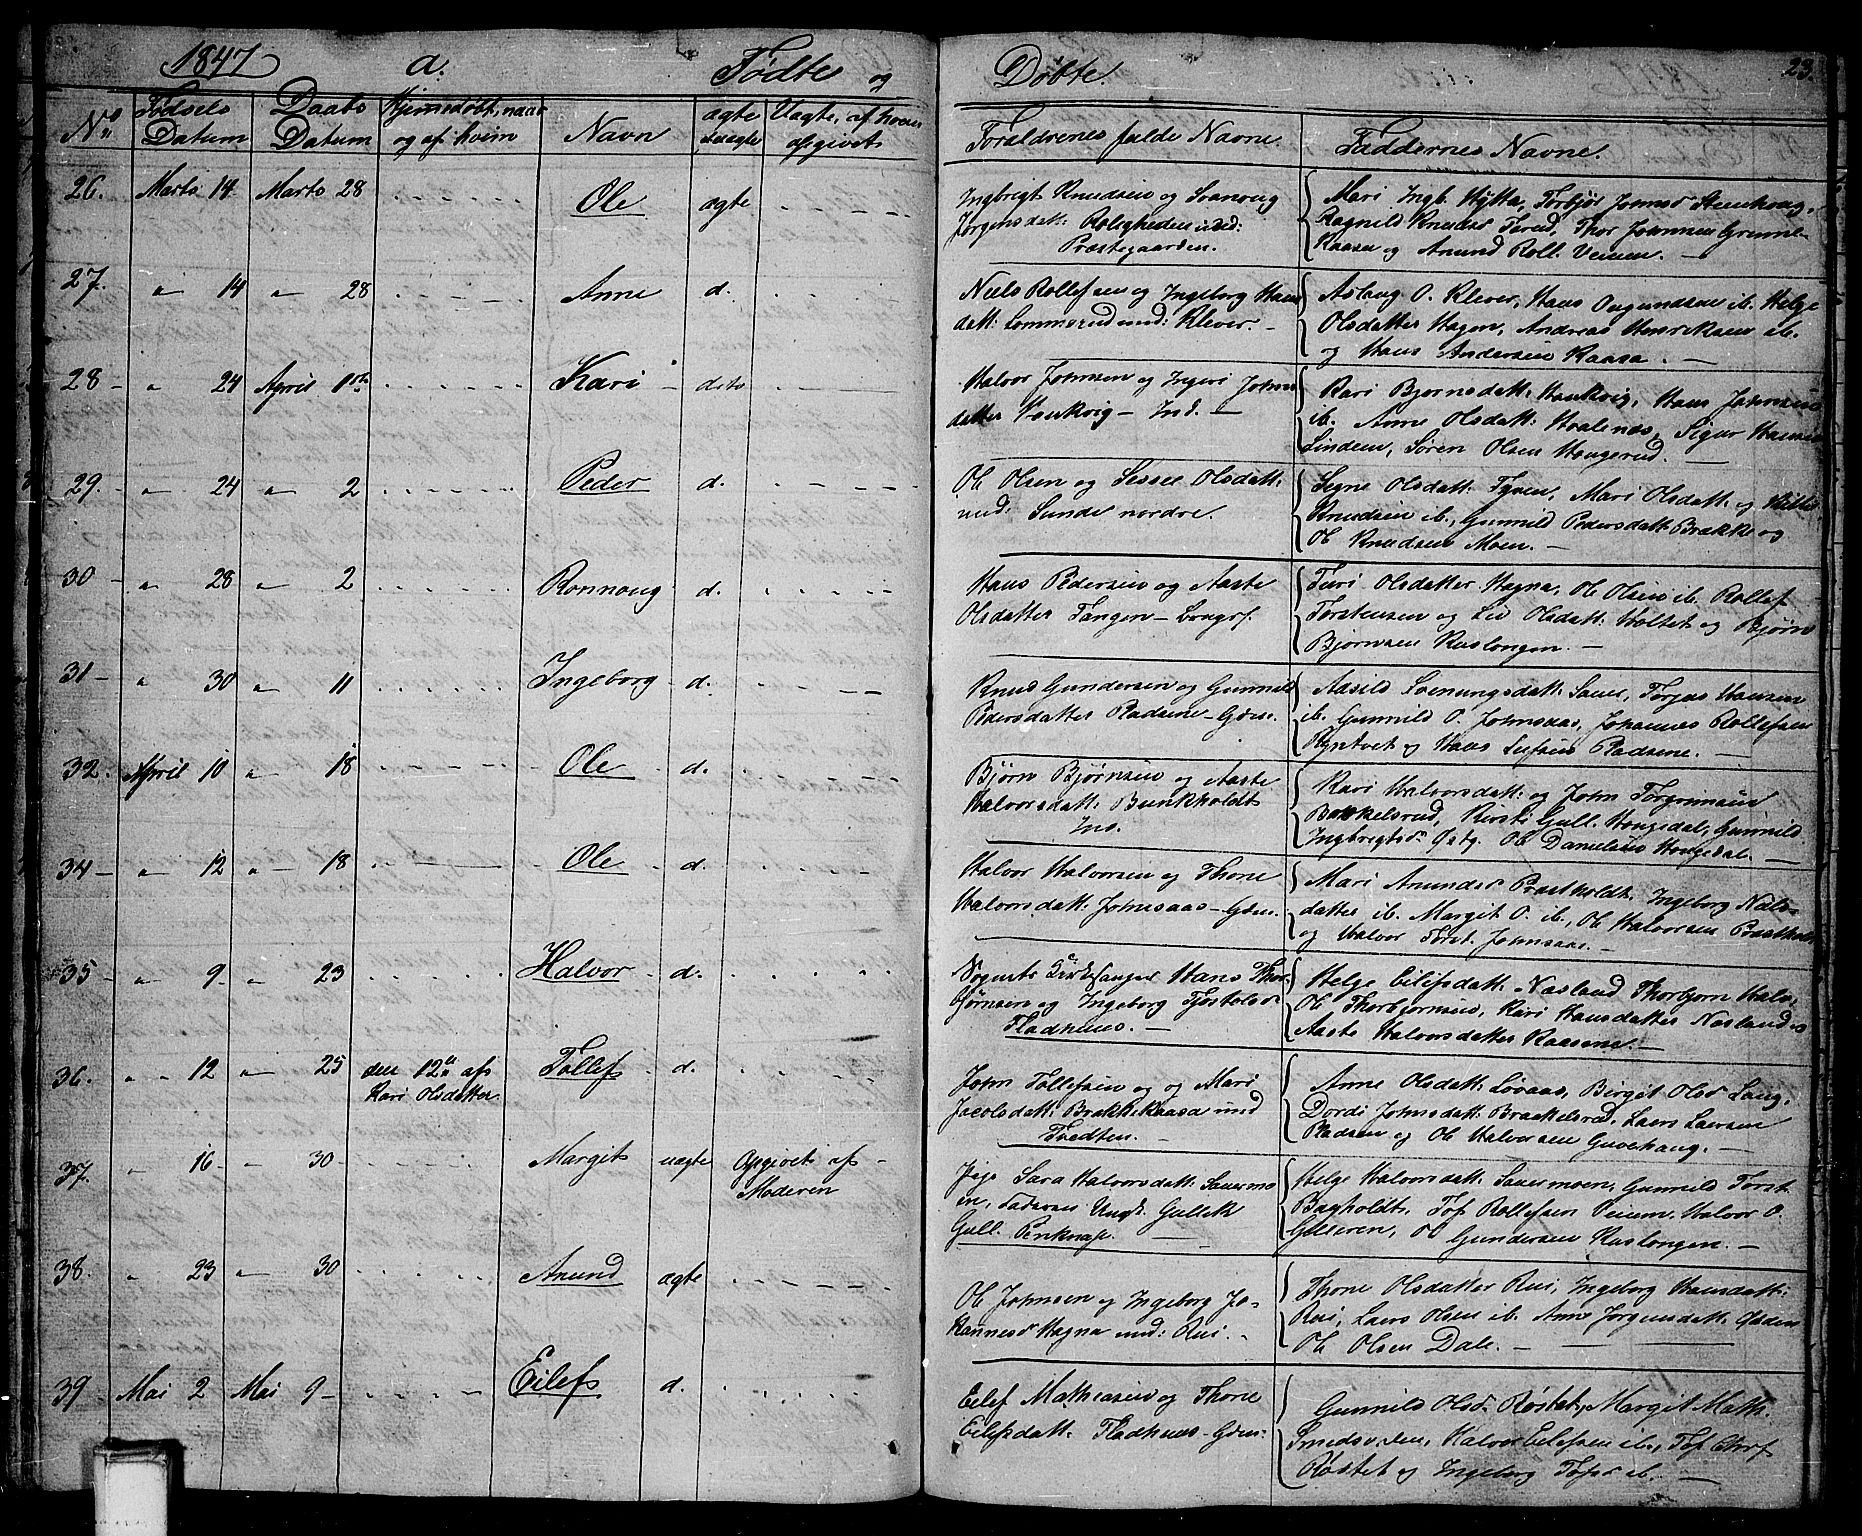 1847 a. Födte og Döbte. 23.
No Födsels Datum Daabs Datum Hjemmedöbt, naar og af hvem Navn ægte uægte Uægte, af hvem opgivet Forældrenes fulde Navne. Faddernes Navne.
26. Marts 14 Marts 28 Ole ægte
Ingbrigt Knudsen og Svanoug
Jörgensdatt: Roligheden und:
Præstegaarden.
Mari Ingb. Hytta, Torbjör Johnsd
Ragnild Knudsd Terud, Thor Johnsen
Kaasa og Anund Roll. Veium.
27. " 14 " 28 Anne d.
Niels Rollefsen og Ingeborg Hans
datt: und: Klever.
Aslaug O. Klever, Hans ib. Helge
Olsdatter Hagen, Andreas Henriksen ib.
og Hans Andersen Kaasa.
28 " 24 April 1ste Kari dito
Halvor Johnsen og Ingeri Johns
datter Haukvig - Ind.
Kari Bjornsdatt: Haukvig, Hans Johnsen
ib. Anne Olsdatt: Sigur
Lindem, Sören Olsen Haugerud.
29. " 24 " 2 Peder d.
Ole Olsen og Olsdatt:
und: Sunde nordre.
Signe Olsdatt: Mari Olsdatt: og
Knudsen ib., Gunnild Pedersdatt: Brække og
Ole Knudsen Moen.
30 " 28 " 2 Ronnoug d.
Hans Pedersen og Aaste
Olsdatter Tangen - Brugsf.
Turi Olsdatter Hagna, Ole Olsen ib. Rollef
Torstensen og Liv Olsdatt: Holtet og Björn
Björnsen Ruslongen.
31 " 30 " 11 Ingeborg d.
Knud Gundersen og Gunnild
Pedersdatter Radsene - Gdm.
Aasild Svenungsdatt: Sauer, Torjus Hansen
ib. Gunnild O. Johnsaas, Johannes Rollefsen
og Hans Radsene.
32. April 10 " 18 Ole d.
Björn Björnsen og Aaste
Halvorsdatt: Bunkholdt
Ind.
Kari Halvorsdatt: og John Torgrimsen
Bakkelsrud, Kirsti Gull. Haugedal, Gunnild
Ole Danielsen Haugedal.
34 " 12 " 18 Ole d.
Halvor Halvorsen og Thone
Halvorsdatt: Johnsaas - Gdm.
Mari Anundsd Præstholdt, Ingeborg Niels-
datter ib. Margit O. ib., Ole Halvorsen Præstholdt
og Halvor Torst. Johnsaas.
35 " 9 " 23 Halvor d.
Sognets Kirkesanger Hans Thor-
björnsen og Ingeborg Tjöstolsd
Fladhuus.
Helge Eilifsdatt: Nasland Thorbjörn Halv.
Ole Thorbjornsen, Kari Hansdatter Nasland
Aaste Halvorsdatter Kaasene.
36. " 12 " 25 den 12te af
Kari Olsdatter Tollef d.
John Tollefsen og og Mari
Jacobsdatt: Brækkekaasa und
Tvedten.
Anne Olsdatt: Lövaas, Birgit Olsd
Dordi Johnsdatt: Brækkelsrud, Laers Laersen
Radsen og Ole Halvorsen
37. " 16 " 30 Margit uægte Opgivet af
Moderen
Pige Sara Halvorsdatt: Sauermo
en, Faderen Ungk. Gullek
Gull.
Helge Halvorsdatt: Sauermoen, Gunnild Torst.
Bagholdt. Tof Rollefsen Veium, Halvor O.
Ole Gundersen Ruslongen.
38. " 23 " 30 Anund ægte
Ole Johnsen og Ingeborg Jo-
hannesd Hagna und: Rui.
Thone Olsdatter Rui, Ingeborg Hansdatt:
Rui, Laers Olsen ib. Anne Jörgensdatt:
Ole Olsen Dale.
39 Mai 2 Mai 9 Eilef d.
Eilef Mathiasen og Thone
Eilefsdatt: Fladhuus - Gdm.
Gunnild Olsd Röstet, Margit Math.
Halvor Eilefsen ib., Tof
Röstet og Ingeborg Tofsd ib.